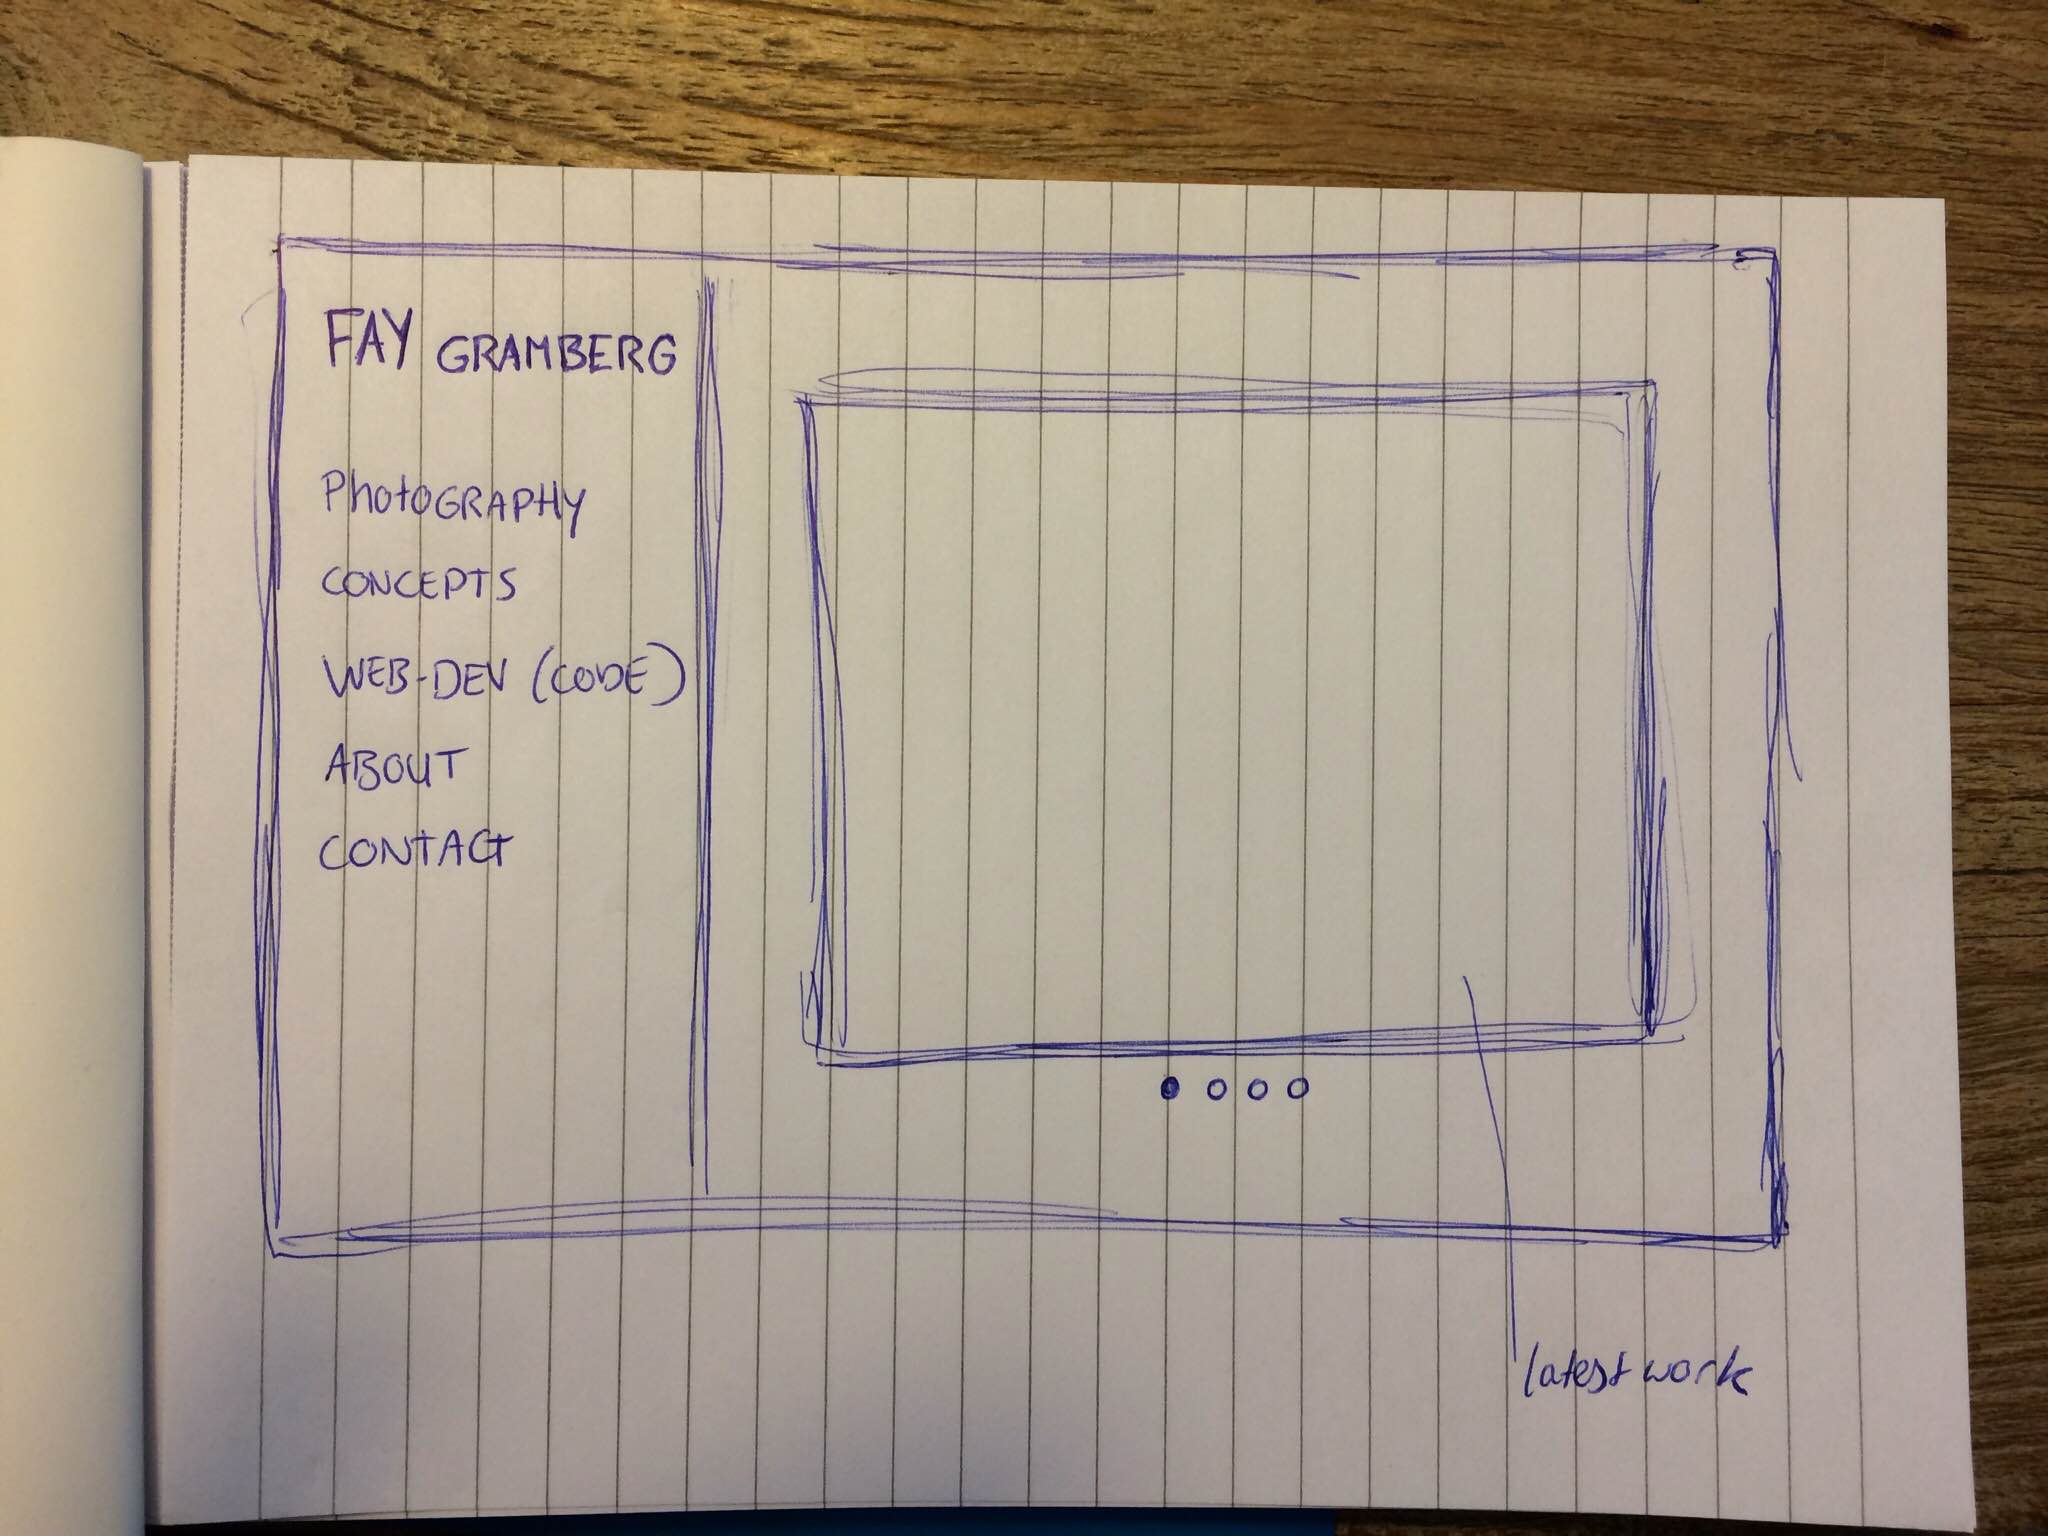 FAY GRAMBERG
PhotoGRAPHY
CONCEPTS
WEB-DEV (CODE)
ABOUT
CONTACT
latest work